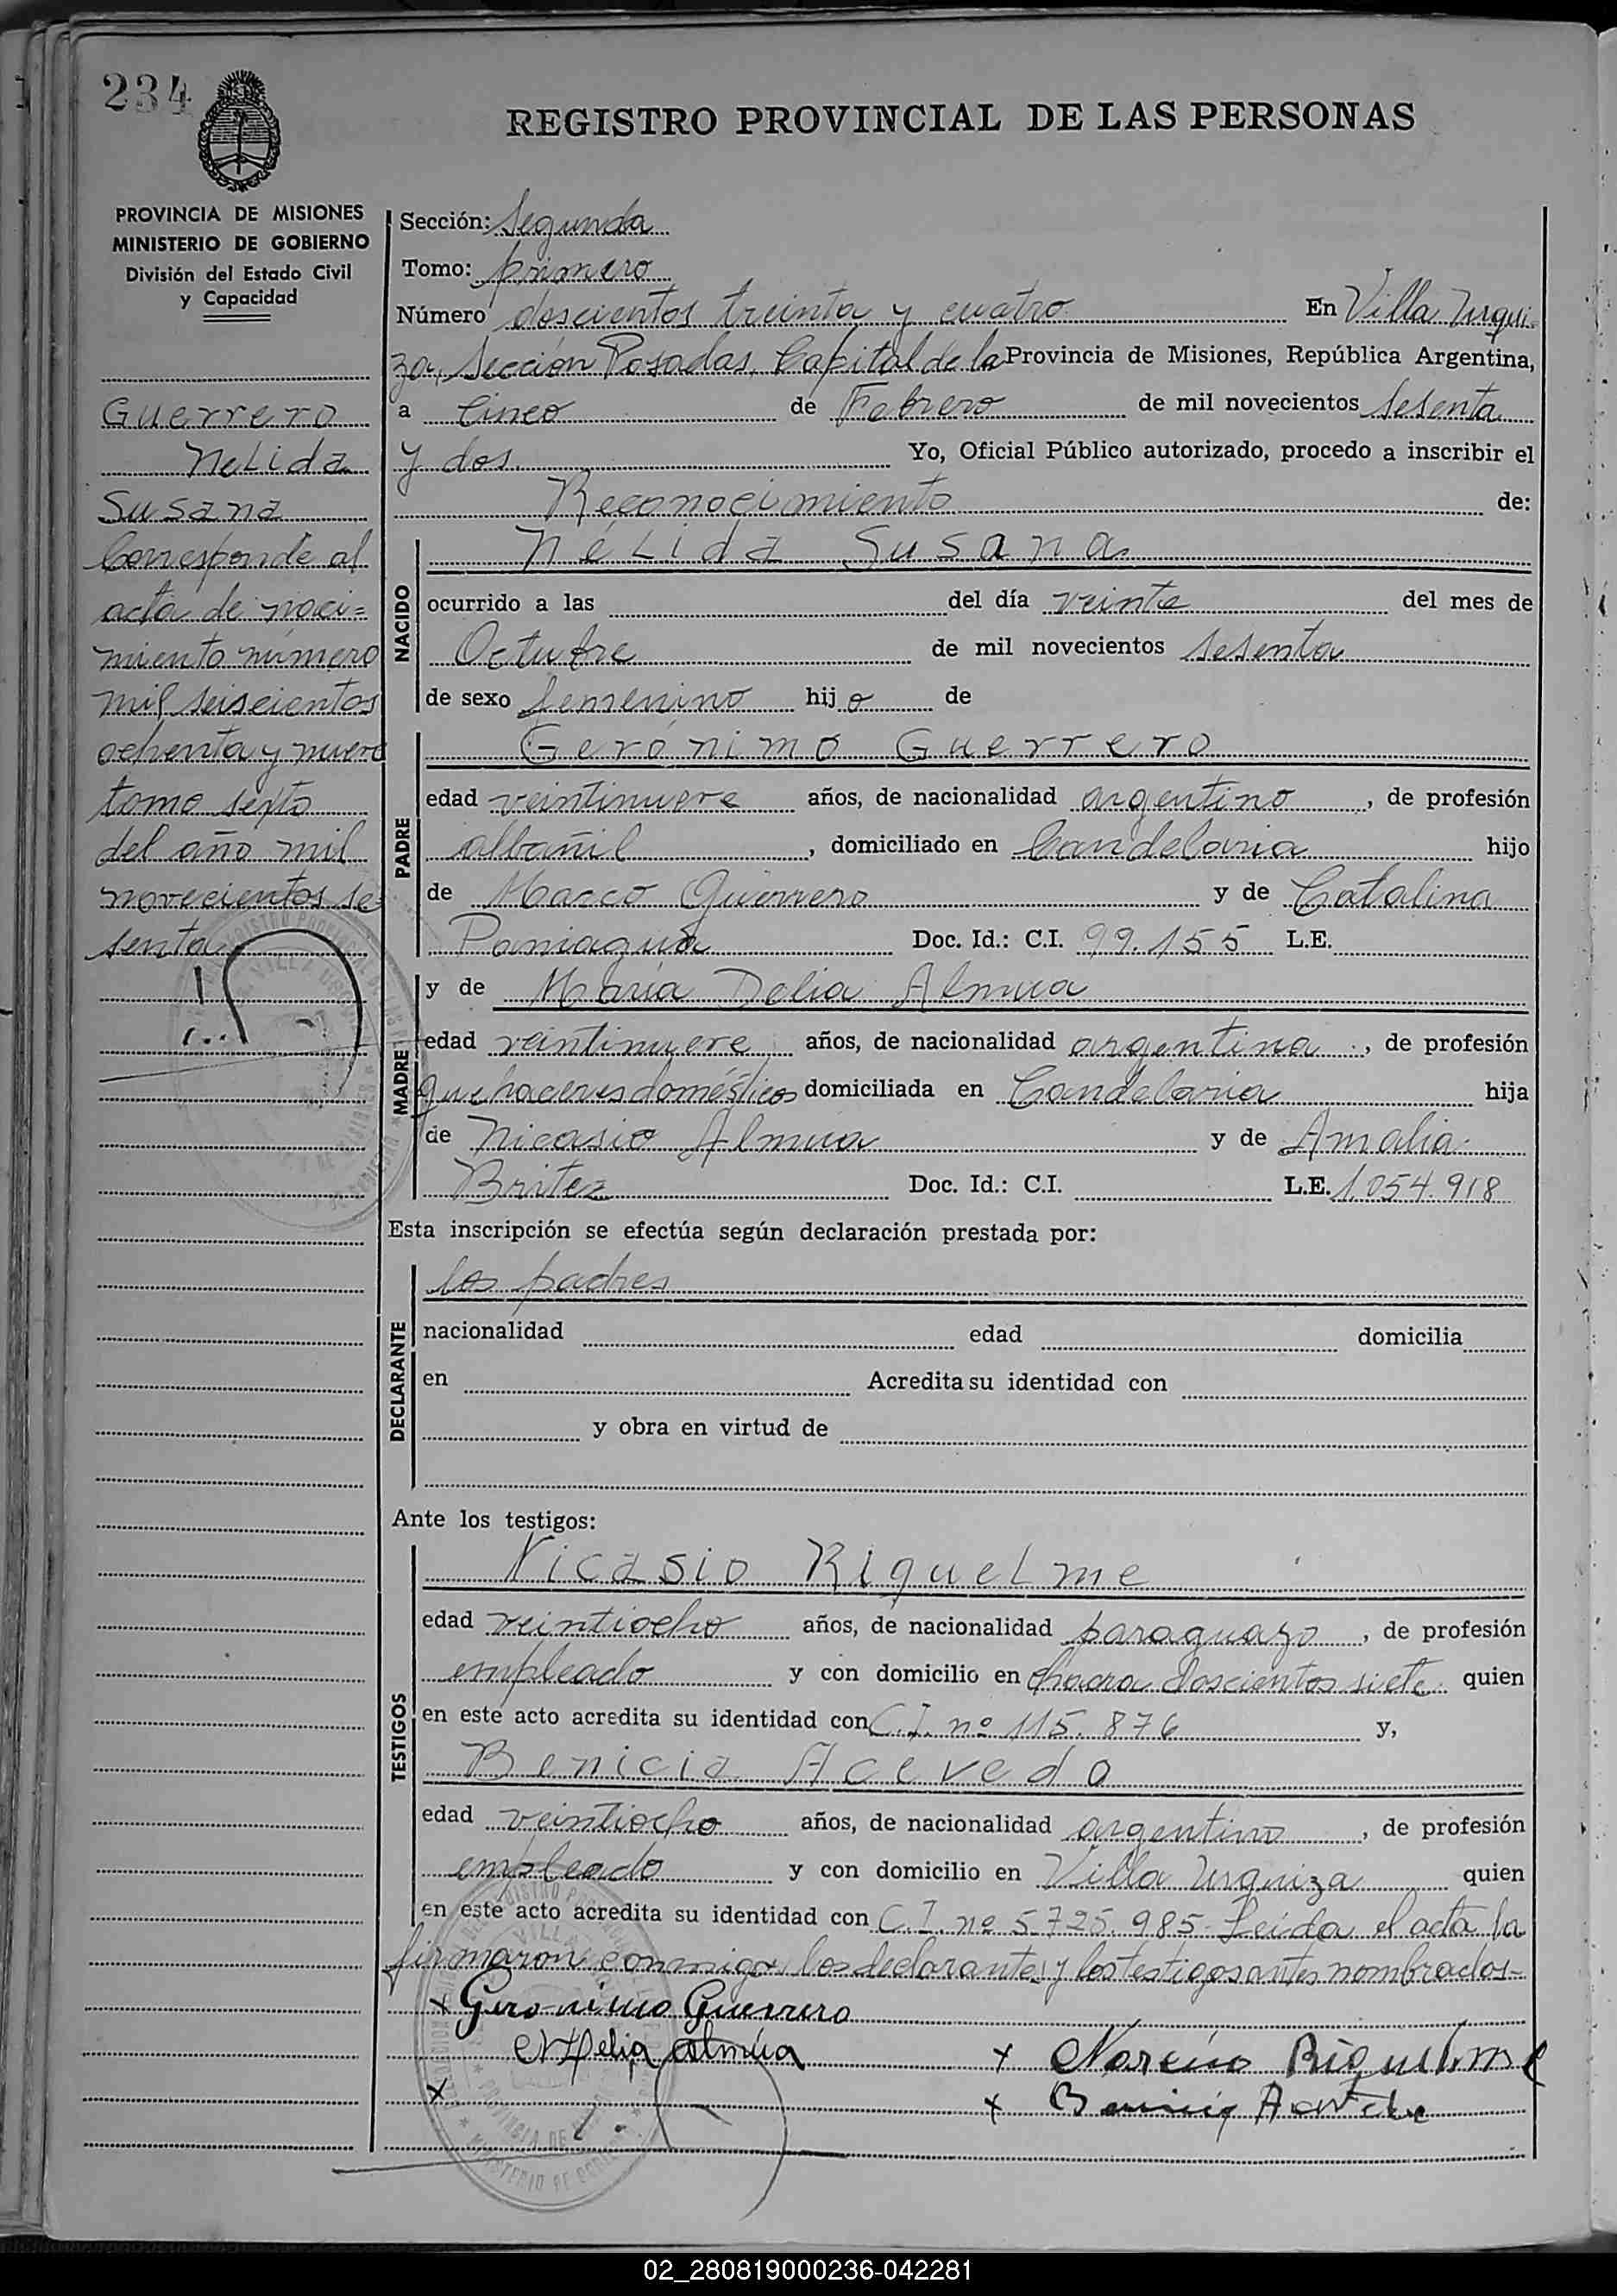 234
REGISTRO PROVINCIAL DE LAS PERSONAS
PROVINCIA DE MISIONES
MINISTERIO DE GOBIERNO
División del Estado Civil
y Capacidad
Guerrero
Nelida
Susana
Corresponde al
acta de naci=
miento número
mil seiscientos
ochenta y nueve
tomo sexto
del año mil
novecientos se=
senta
Sección: Segunda
Tomo: primero
Número doscientos treinta y cuatro En Villa Urqui-
za, Sección Posadas, Capital de la Provincia de Misiones, República Argentina,
a Cinco de Febrero de mil novecientos sesenta
y dos. Yo, Oficial Público autorizado, procedo a inscribir el
Reconocimiento de:
NACIDO
Nélida Susana
ocurrido a las del día veinte del mes de
Octubre de mil novecientos sesenta
de sexo femenino hijo de
PADRE
Gerónimo Guerrero
edad veintinueve años, de nacionalidad argentino, de profesión
albañil, domiciliado en Candelaria hijo
de Marco Guerrero y de Catalina
Paniagua Doc. Id.: C.I. 99.155 L.E.
MADRE
y de María Delia Almua
edad veintinueve años, de nacionalidad argentina, de profesión
quehaceres domésticos domiciliada en Candelaria hija
de Nicasio Almua y de Amalia
Britez Doc. Id.: C.I. L.E. 1.054.918
Esta inscripción se efectúa según declaración prestada por:
DECLARANTE
los padres
nacionalidad edad domicilia
en Acredita su identidad con
y obra en virtud de
Ante los testigos:
TESTIGOS
Nicasio Riquelme
edad veintiocho años, de nacionalidad paraguayo, de profesión
empleado y con domicilio en chacra doscientos siete quien
en este acto acredita su identidad con C.I. nº 115.876 y,
Benicia Acevedo
edad veintiocho años, de nacionalidad argentino, de profesión
empleado y con domicilio en Villa Urquiza quien
en este acto acredita su identidad con C.I. nº 5.725.985 Leída el acta la
firmaron conmigo los declarantes y los testigos antes nombrados-
x Geronimo Guerrero
Delia Almúa
x Riquelme
x
x
02_280819000236-042281